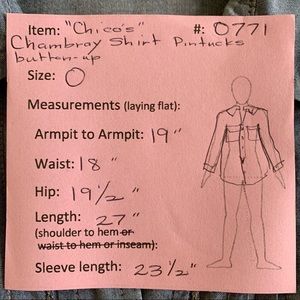 Item: "Chico's" #: 0771
Chambray Shirt Pintucks
button-up
Size: 0
Measurements (laying flat):
Armpit to Armpit: 19"
Waist: 18"
Hip: 19 1/2"
Length: 27"
(shoulder to hem or
waist to hem or inseam):
Sleeve length: 23 1/2"